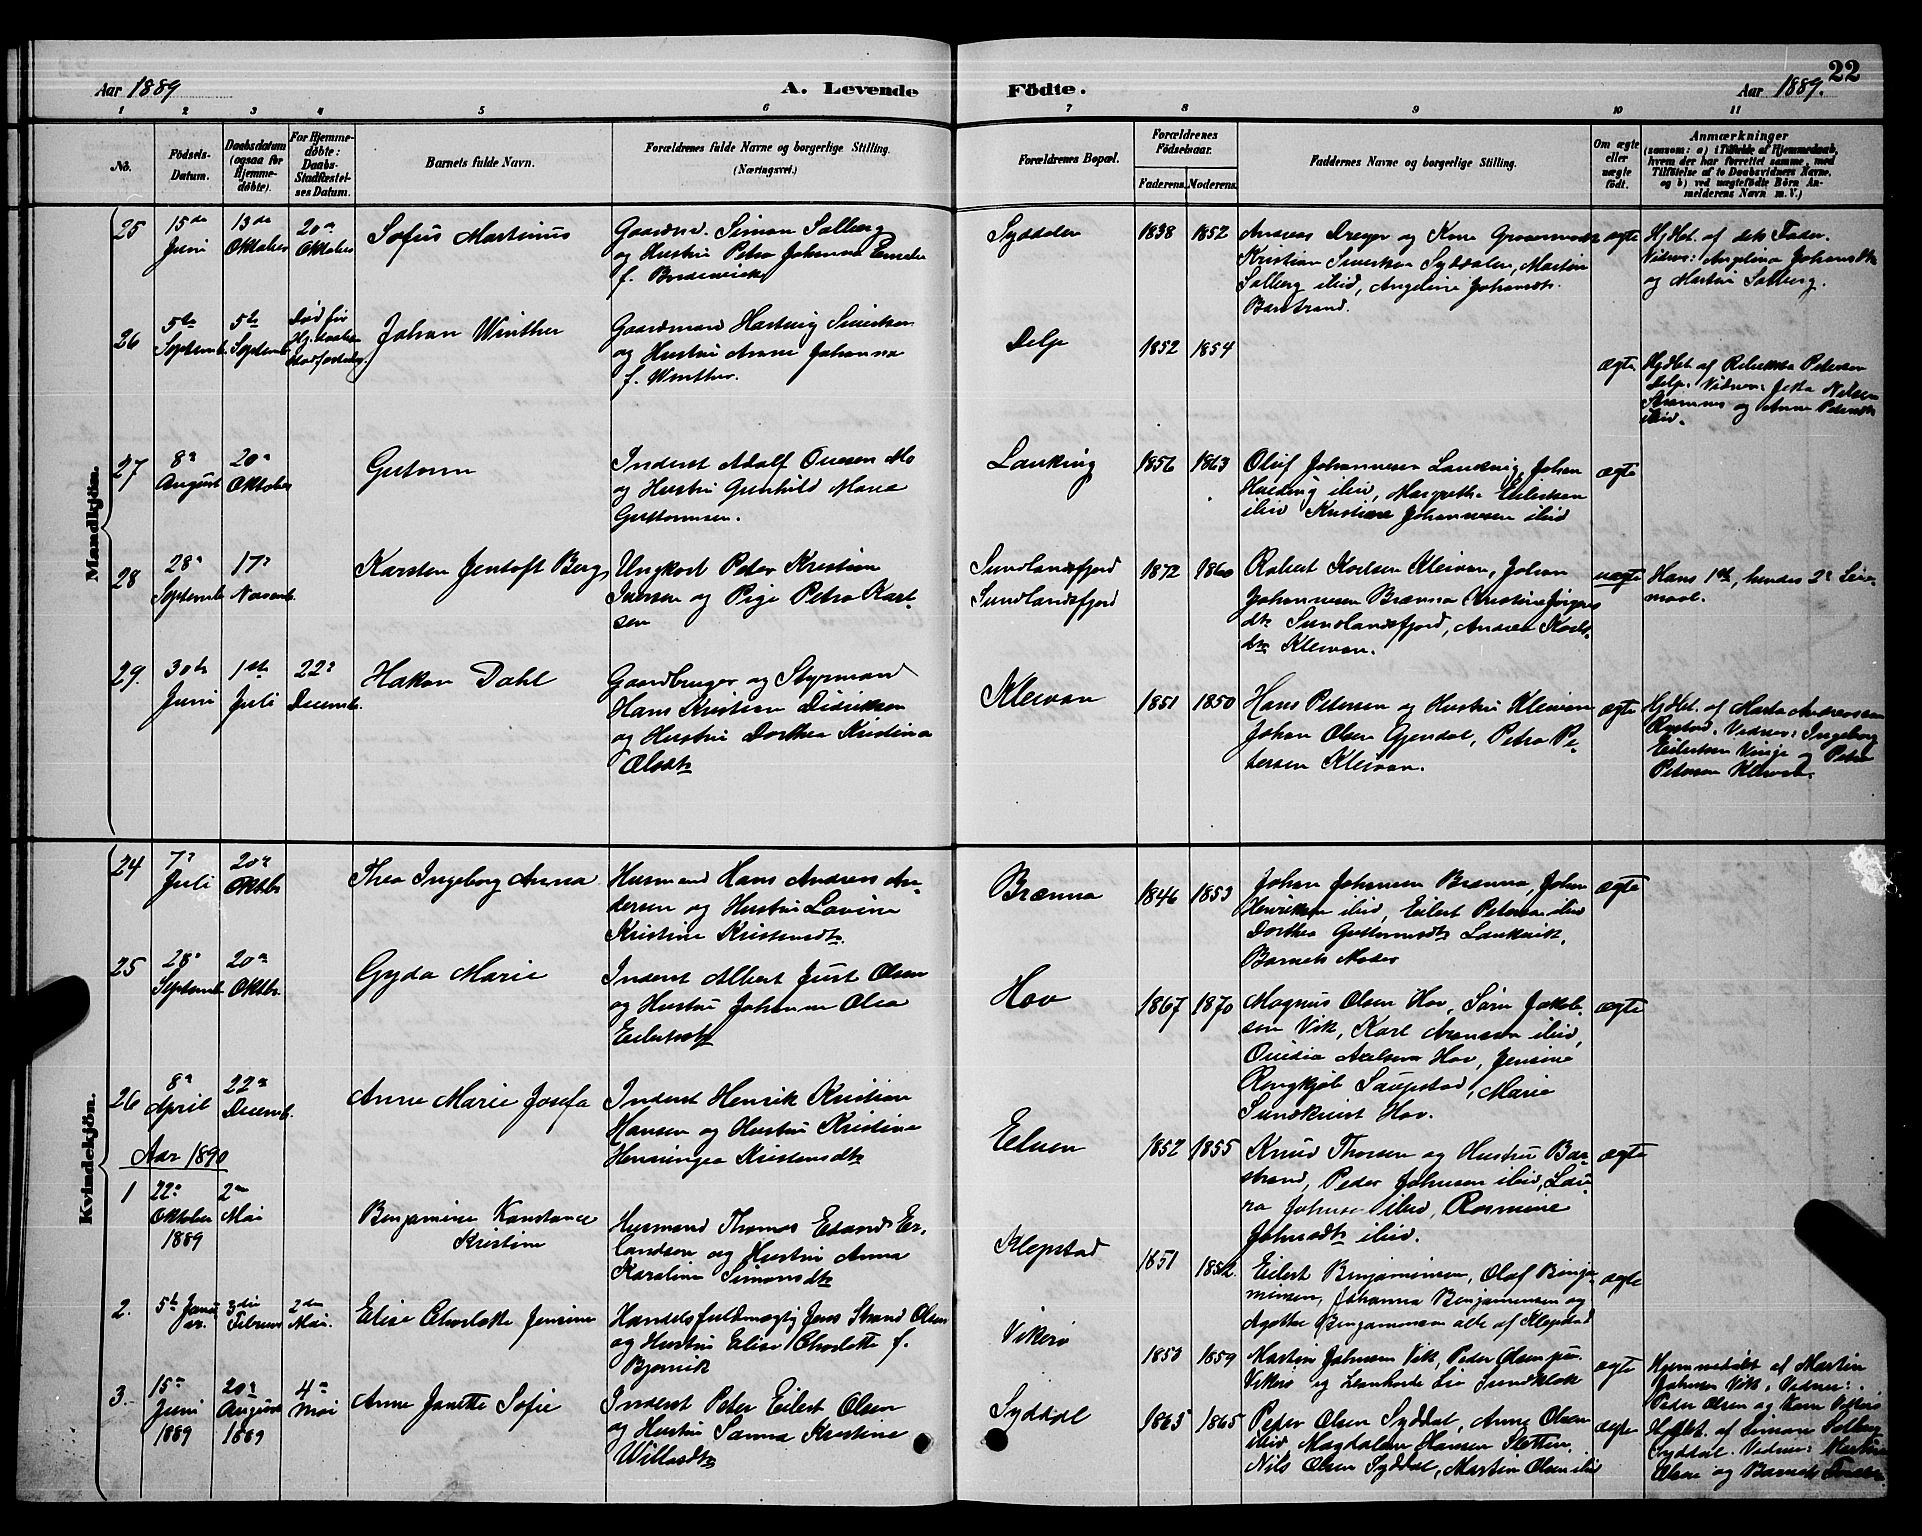 Aar 1889
A. Levende
Födte.
Aar 1889.
22
1 2 3 4 5 6 7 8 9 10 11
No.
Födsels-
Datum.
Daabsdatum
(ogsaa for
Hjemme-
döbte).
For Hjemme-
döbte:
Daabs-
Stadfæstel-
ses Datum.
Barnets fulde Navn.
Forældrenes fulde Navne og borgerlige Stilling.
(Næringsvei.)
Forældrenes Bopæl.
Forældrenes
Födselsaar.
Faderens. Moderens.
Faddernes Navne og borgerlige Stilling.
Om ægte
eller
uægte
födt.
Anmærkninger
(saasom: a) i Tilfælde af Hjemmedaab,
hvem der har forrettet samme, med
Tilföielse af to Daabsvidners Navne,
og b) ved uægtefödte Börn An-
melderens Navn m. V.)
Mandkjön.
25
15de
Juni
13de
Oktober
20de
Oktober
Sofus Martinus
Gaardmd. Simon Solberg
og Hustru Petra Johanna
f.
Syddalen
1838 1852
Andreas Dreyer og
Kristian Sivertsen Syddalen, Martin
Solberg ibid, Angeline Johansdtr.
Barstrand.
ægte
Hj.dbt. af dets Fader.
Vidner: Angelina Johansdtr
og Martin Solberg.
26
5te
Septemb.
5te
Septemb.
Død før
Johan Winther
Gaardmand Hartvig Sivertsen
og Hustru Anne Johanna
f. Winther.
Delp
1852 1854
ægte
Hj.dbt. af Rebekka Petersen
Delp. Vidner: Nilsen
og Anne Petersdtr
ibid.
27
8de
August
20de
Oktober
Guttorm
Inderst Adolf Ovesen Mo
og Hustru Gunhild Marie
Guttormsen.
Laukvig
1856 1863
Oluf Johannesen Laukvig, Johan
ibid, Margrethe Eilertsen
ibid Kristine Johannesen ibid
ægte
28
28de
Septemb.
17de
Novemb.
Karsten Jentoft Berg
Ungkarl Peder Kristian
Iversen og Pige Petra Karl-
sen
Sundlandsfjord
Sundlandsfjord
1872 1860
Robert Karlsen Kleivan, Johan
Johannesen Brænna, Kristine Jørgens
dtr. Sundlandsfjord, Andrea Karls-
dtr. Kleivan.
uægte
Hans 1ste, hendes 2de Leier-
maal.
29.
30te
Juni
1ste
Juli
22de
Decemb.
Hakon Dahl
Gaardbruger og Styrmand
Hans Kristian Didriksen
og Hustru Dorthea Kristina
Olsdtr
Kleivan
1851 1850
Hans Petersen og Hustru Kleivan
Johan Olsen Gjendal, Petra Pe-
tersen Kleivan.
ægte
Hj.dbt. af Marta Andreassen
Vidner: Ingeborg
Eilertsen Vinje og Petra
Petersen Kleivan.
Kvindekjön.
24
7de
Juli
20de
Oktbr.
Thea Ingeborg Anna
Husmand Hans Andreas An-
dersen og Hustru Lavina
Kristine Kristensdtr.
Brænna
1846 1853
Johan Johansen Brænna, Johan
Henriksen ibid, Eilert Petersen ibid
Dorthea Guttormsdtr Laukvik,
Barnets Moder
ægte
25
28de
Septemb.
20de
Oktbr.
Gyda Marie
Inderst Albert Just Olsen
og Hustru Johanna Olea
Eilertsdtr
Hov
1867 1870
Magnus Olsen Hov, Sørn Jakob-
sen Vik, Karl Arensen ibid,
Ovidia Axelsen Hov, Jensine
Ringkjøb Saupstad, Marie
Sundkvist Hov.
ægte
26
8de
April
22de
Decemb.
Anne Marie Josefa
Inderst Henrik Kristian
Hansen og Hustru Kristina
Henningea Kristensdtr
Eelven
1852 1855
Knud Thorsen og Hustru Bar-
strand, Peder Johnsen ibid, Lau-
ra Johnsen ibid, Rasmine
Johnsdtr ibid.
ægte
Aar 1890
1
22de
Oktober
1889
2den
Mai
Benjamine Konstance
Kristine
Husmand Thomas Edvard Er-
landsen og Hustru Anna
Karoline Simonsdtr
Klepstad
1851 1852
Eilert Benjaminsen, Olaf Benja-
minsen, Johanna Benjaminsen og
Agathe Benjaminsen alle af Klepstad
ægte
2.
5te Janu-
ar.
3die
Februar
2den
Mai.
Elise Charlotte Jensine
Handelsfuldmægtig Jens Strand Olsen
og Hustru Elise Charlotte f.
Bjørvik
Vikerø
1853 1859
Martin Johnsen Vik, Peder Olsen
Vikerø og Leonharde Lie Sundklak
ægte
Hjemmedøbt af Martin
Johnsen Vik. Vidner:
Peder Olsen og
3.
15de
Juni
1889
20de
August
1889
4de
Mai
Anne Janette Sofie
Inderst Peter Eilert Olsen
og Hustru Sanna Kristine
Willasdtr
Syddal
1863 1865
Peder Olsen Syddal, Anne Olsen
ibid, Magdalena Hansen Sletten,
Nils Olsen Syddal, Martin Olsen ibid
ægte
Hj.dbt. af Simon Solberg
Syddal. Vidner: Martin
Olsen og Barnets